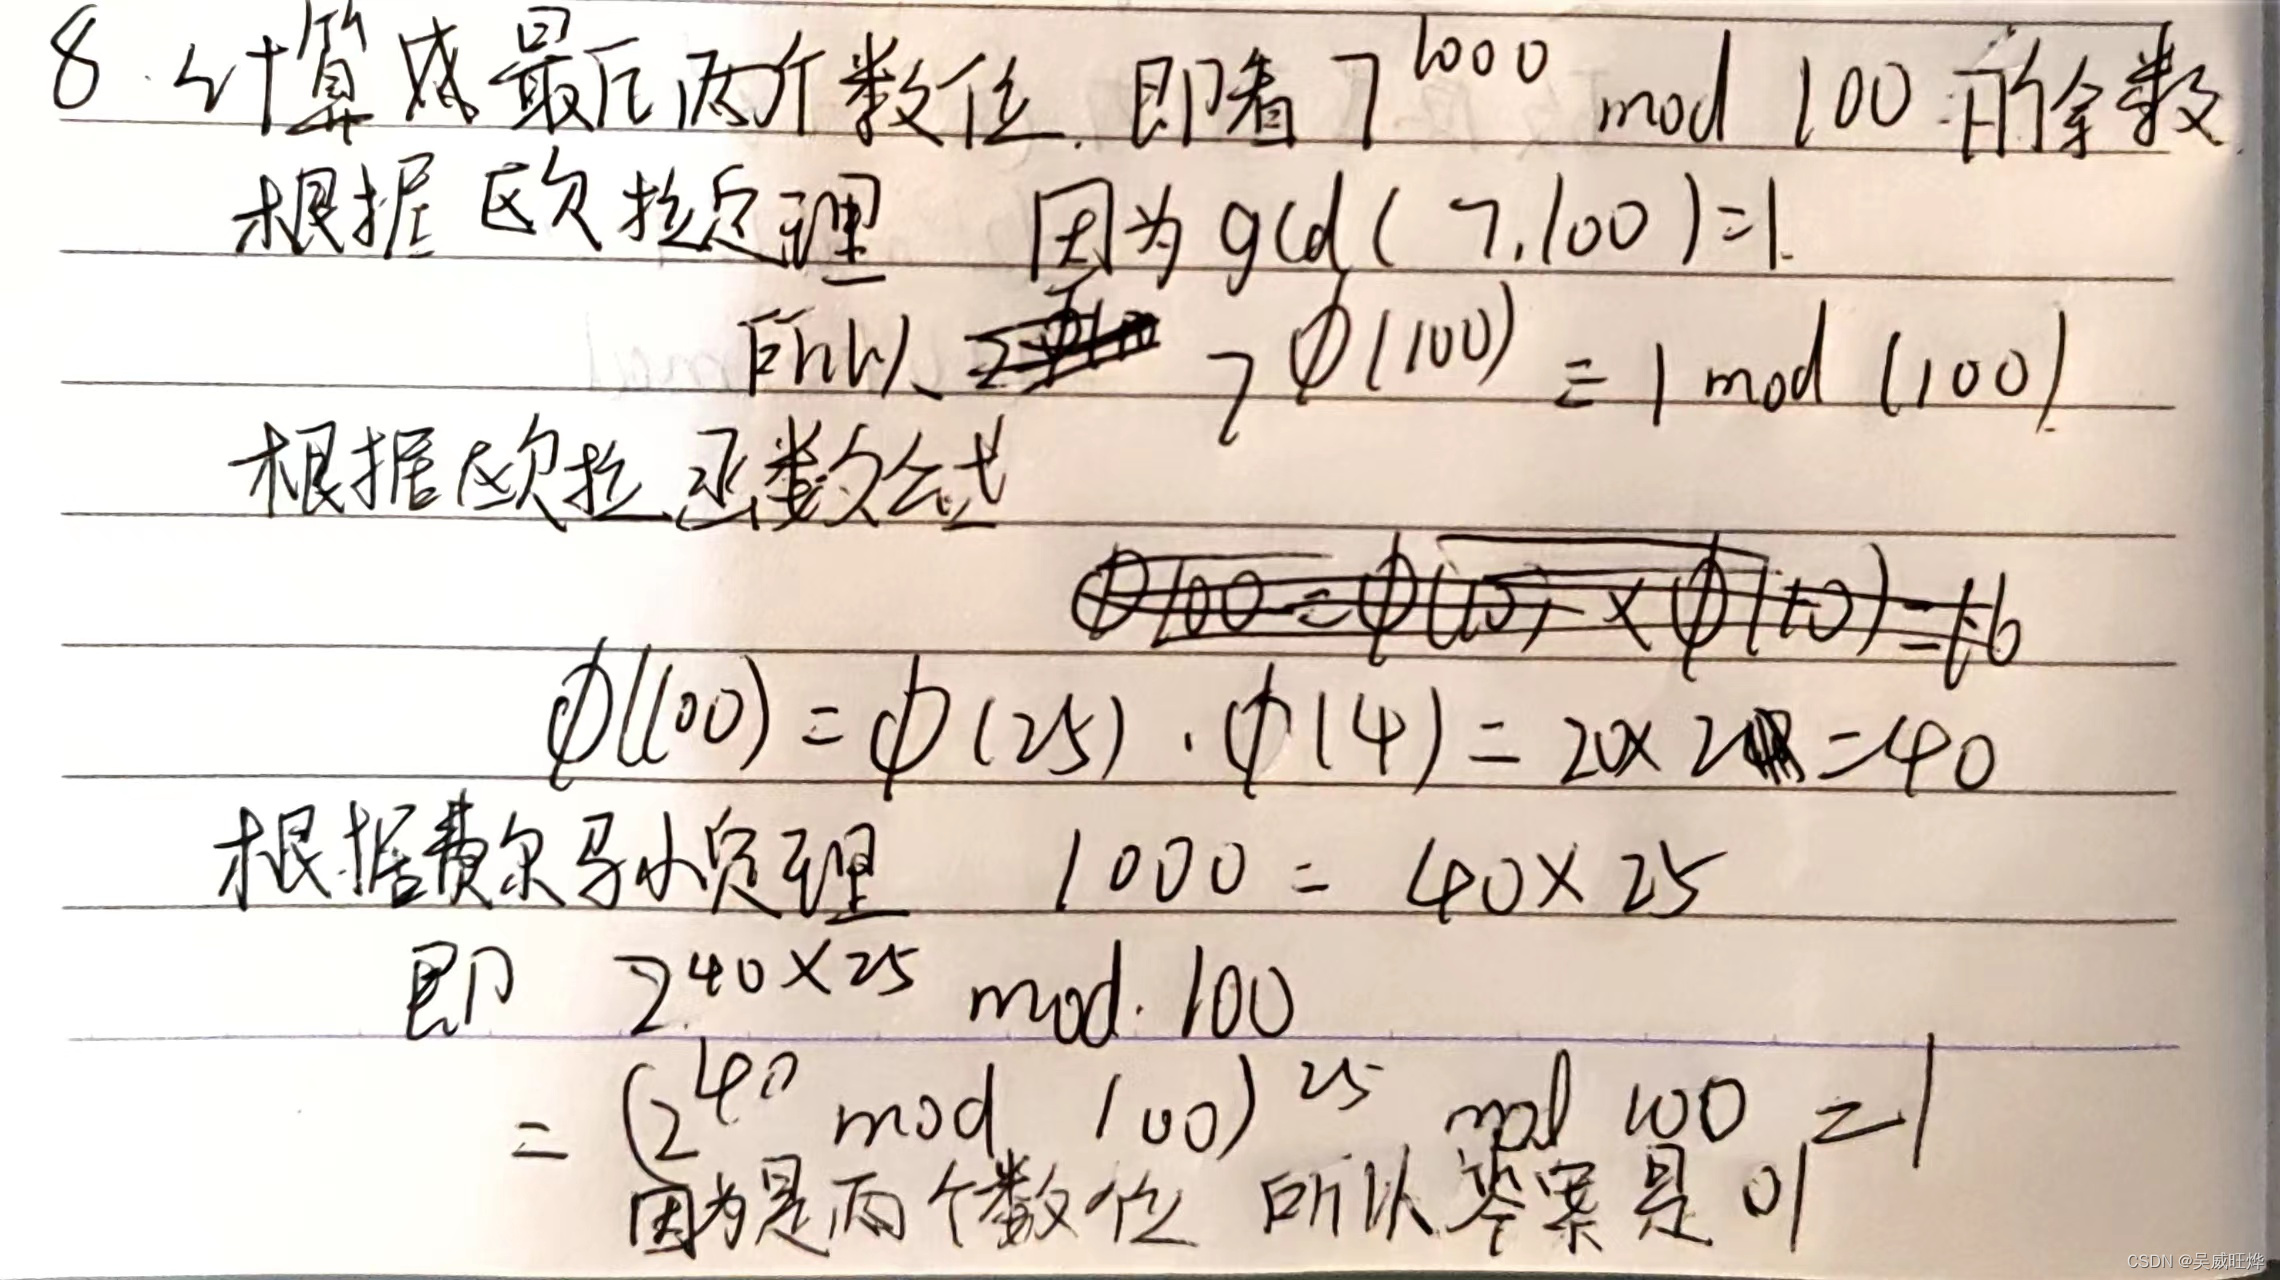 8. 计算成最后两个数位. 即看 7^1000 mod 100 的余数
根据欧拉定理 因为 gcd(7.100)=1.
所以 7^φ(100) ≡ 1 mod (100).
根据欧拉函数公式
φ100=φ(10)×φ(10)=16
φ(100)=φ(25)·φ(4)=20×2=40
根据费尔马小定理 1000=40×25
即 2^40×25 mod. 100
=(2^40 mod 100)^25 mod 100 =1
因为是两个数位 所以答案是 01
CSDN @吴威旺烨